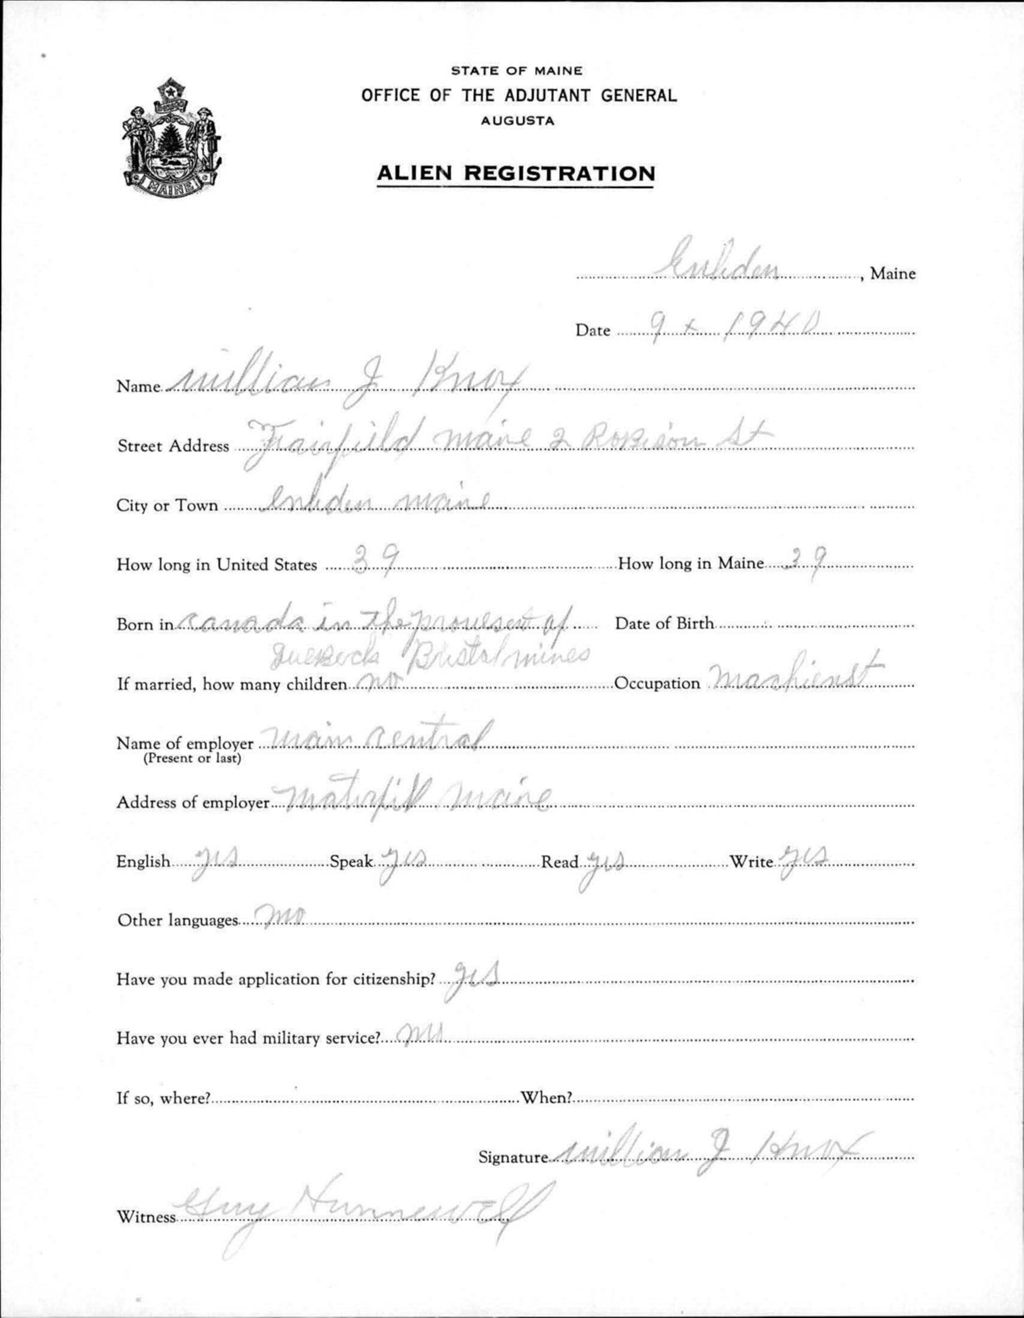 STATE OF MAINE
OFFICE OF THE ADJUTANT GENERAL
AUGUSTA
ALIEN REGISTRATION
MAINE
Embden, Maine
Date 9 x 1940
Name William J Knox
Street Address Fairfield Maine 2 Robison St
City or Town Embden Maine
How long in United States 39 How long in Maine 39
Born in Canada in the of Date of Birth
Bristol mines
If married, how many children no Occupation Machienst
Name of employer Main Central
(Present or last)
Address of employer Maine
English yes Speak yes Read yes Write yes
Other languages no
Have you made application for citizenship? yes
Have you ever had military service? no
If so, where? When?
Signature William J Knox
Witness Guy Hunnewell